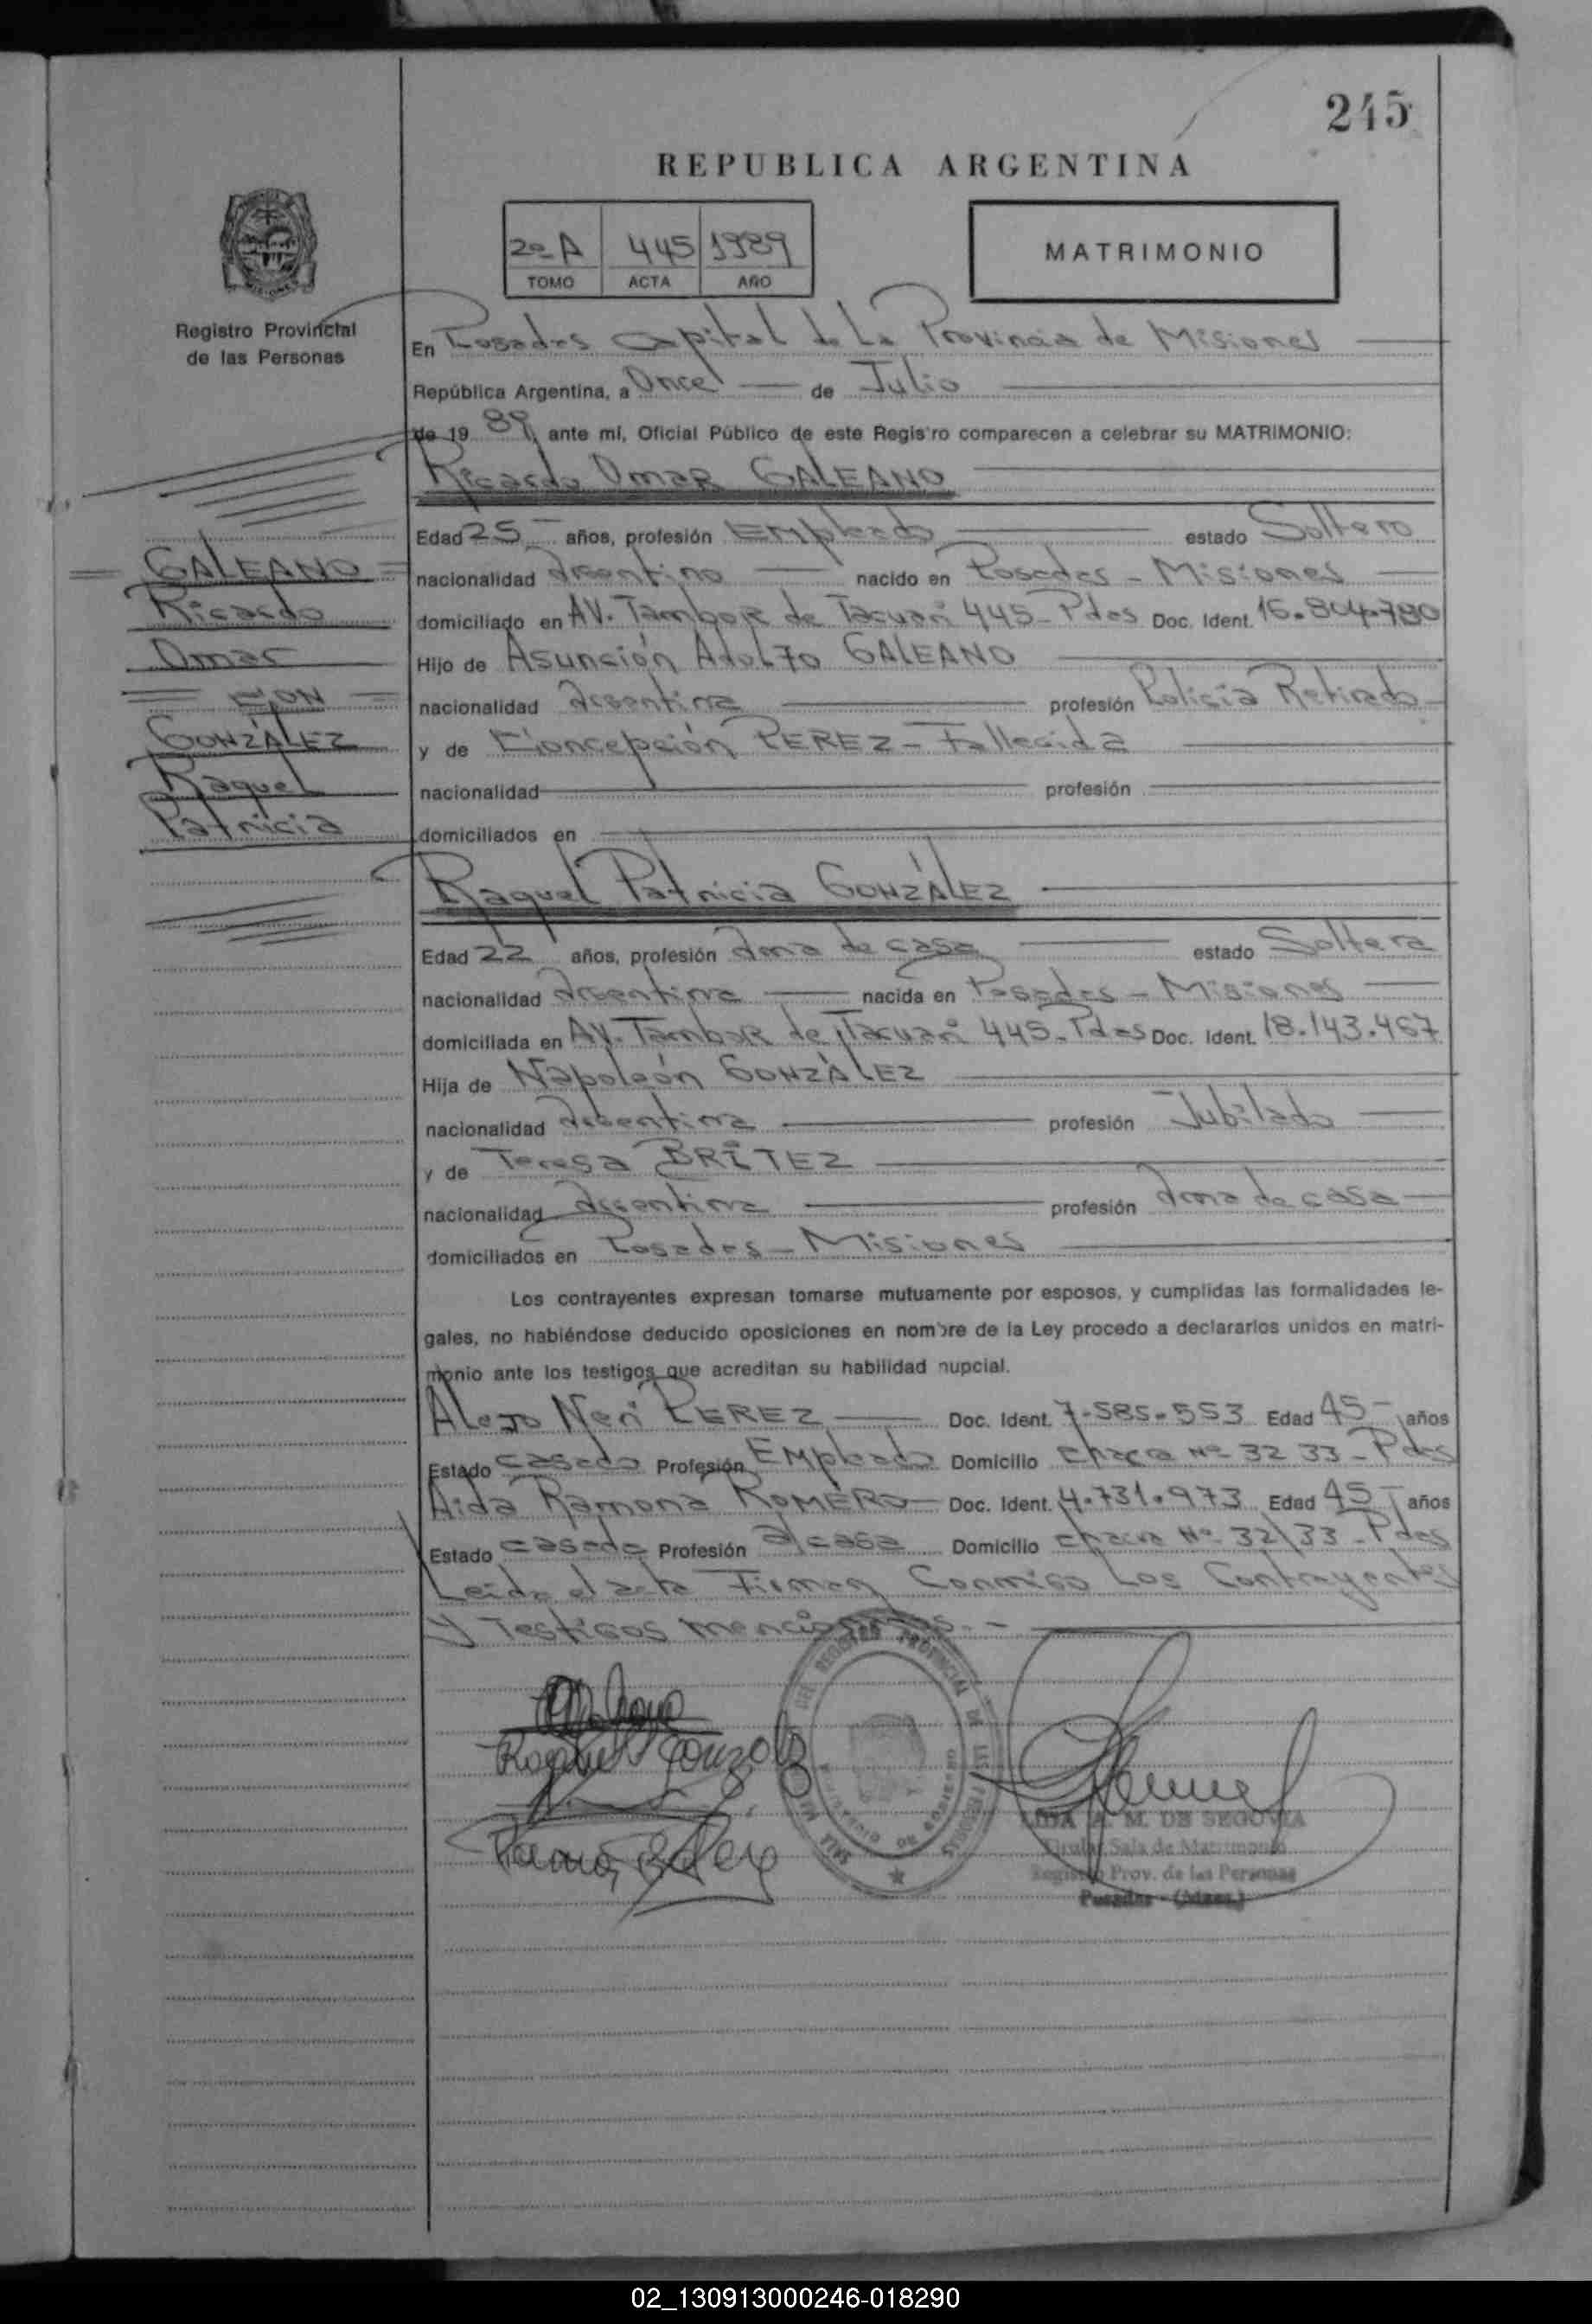 245
REPUBLICA ARGENTINA
2º A 445 1989
TOMO ACTA AÑO
MATRIMONIO
Registro Provincial
de las Personas
En Posadas Capital de La Provincia de Misiones
República Argentina, a Once de Julio
de 19 89, ante mí, Oficial Público de este Registro comparecen a celebrar su MATRIMONIO:
Ricardo Omar GALEANO
Edad 25 años, profesión Empleado estado Soltero
nacionalidad Argentino nacido en Posadas - Misiones
domiciliado en AV. Tambor de Tacuarí 445 - Pdas Doc. Ident. 16.804.790
Hijo de Asunción Adolfo GALEANO
nacionalidad Argentina profesión Policía Retirado
y de Concepción PEREZ - Fallecida
nacionalidad profesión
domiciliados en
GALEANO
Ricardo
Omar
CON
GONZÁLEZ
Raquel
Patricia
Raquel Patricia GONZÁLEZ
Edad 22 años, profesión Ama de casa estado Soltera
nacionalidad Argentina nacida en Posadas - Misiones
domiciliada en AV. Tambor de Tacuarí 445 - Pdas Doc. Ident. 18.143.467
Hija de Napoleón GONZÁLEZ
nacionalidad Argentina profesión Jubilado
y de Teresa BRÍTEZ
nacionalidad Argentina profesión Ama de casa
domiciliados en Posadas - Misiones
Los contrayentes expresan tomarse mutuamente por esposos, y cumplidas las formalidades le-
gales, no habiéndose deducido oposiciones en nombre de la Ley procedo a declararlos unidos en matri-
monio ante los testigos que acreditan su habilidad nupcial.
Alejo Neri PEREZ Doc. Ident. 7.585.553 Edad 45 años
Estado Casado Profesión Empleado Domicilio Chacra Nº 32 33 - Pdas
Aida Ramona ROMERO Doc. Ident. 4.731.973 Edad 45 años
Estado Casada Profesión a/casa Domicilio Chacra Nº 32/33 - Pdas
Leída el acta Firman Conmigo Los Contrayentes
Y Testigos mencionados. -
Raquel González
DEL REGISTRO PROVINCIAL DE LAS PERSONAS
MINISTERIO DE GOBIERNO
LIDIA A. M. DE SEGOVIA
Titular Sala de Matrimonio
Registro Prov. de las Personas
Posadas - (Mnes.)
02_130913000246-018290